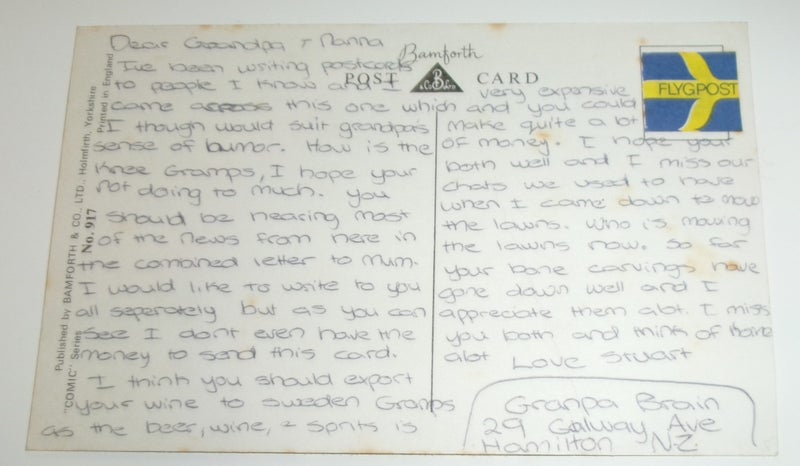 Dear Grandpa + Nanna
I've been writing postcards
to people I know and I
came across this one which
I though would suit grandpa's
sense of bumor. How is the
knee Gramps, I hope your
not doing to much. You
should be hearing most
of the news from here in
the combined letter to mum.
I would like to write to you
all seperately but as you can
see I dont even have the
money to send this card.
I think you should export
your wine to Sweden Gramps
as the beer, wine, + sprits is
very expensive
and you could
make quite a bit
of money. I hope your
both well and I miss our
chats we used to have
when I came down to mow
the lawns. Who is mowing
the lawns now. So far
your bone carvings have
gone down well and I
appreciate them alot. I miss
you both and think of home
alot Love Stuart
Granpa Brain
29 Galway Ave
Hamilton NZ
Bamforth
POST CARD
B
& Co Ltd
FLYGPOST
Published by BAMFORTH & CO., LTD., Holmfirth, Yorkshire
"COMIC" Series No. 917 Printed in England